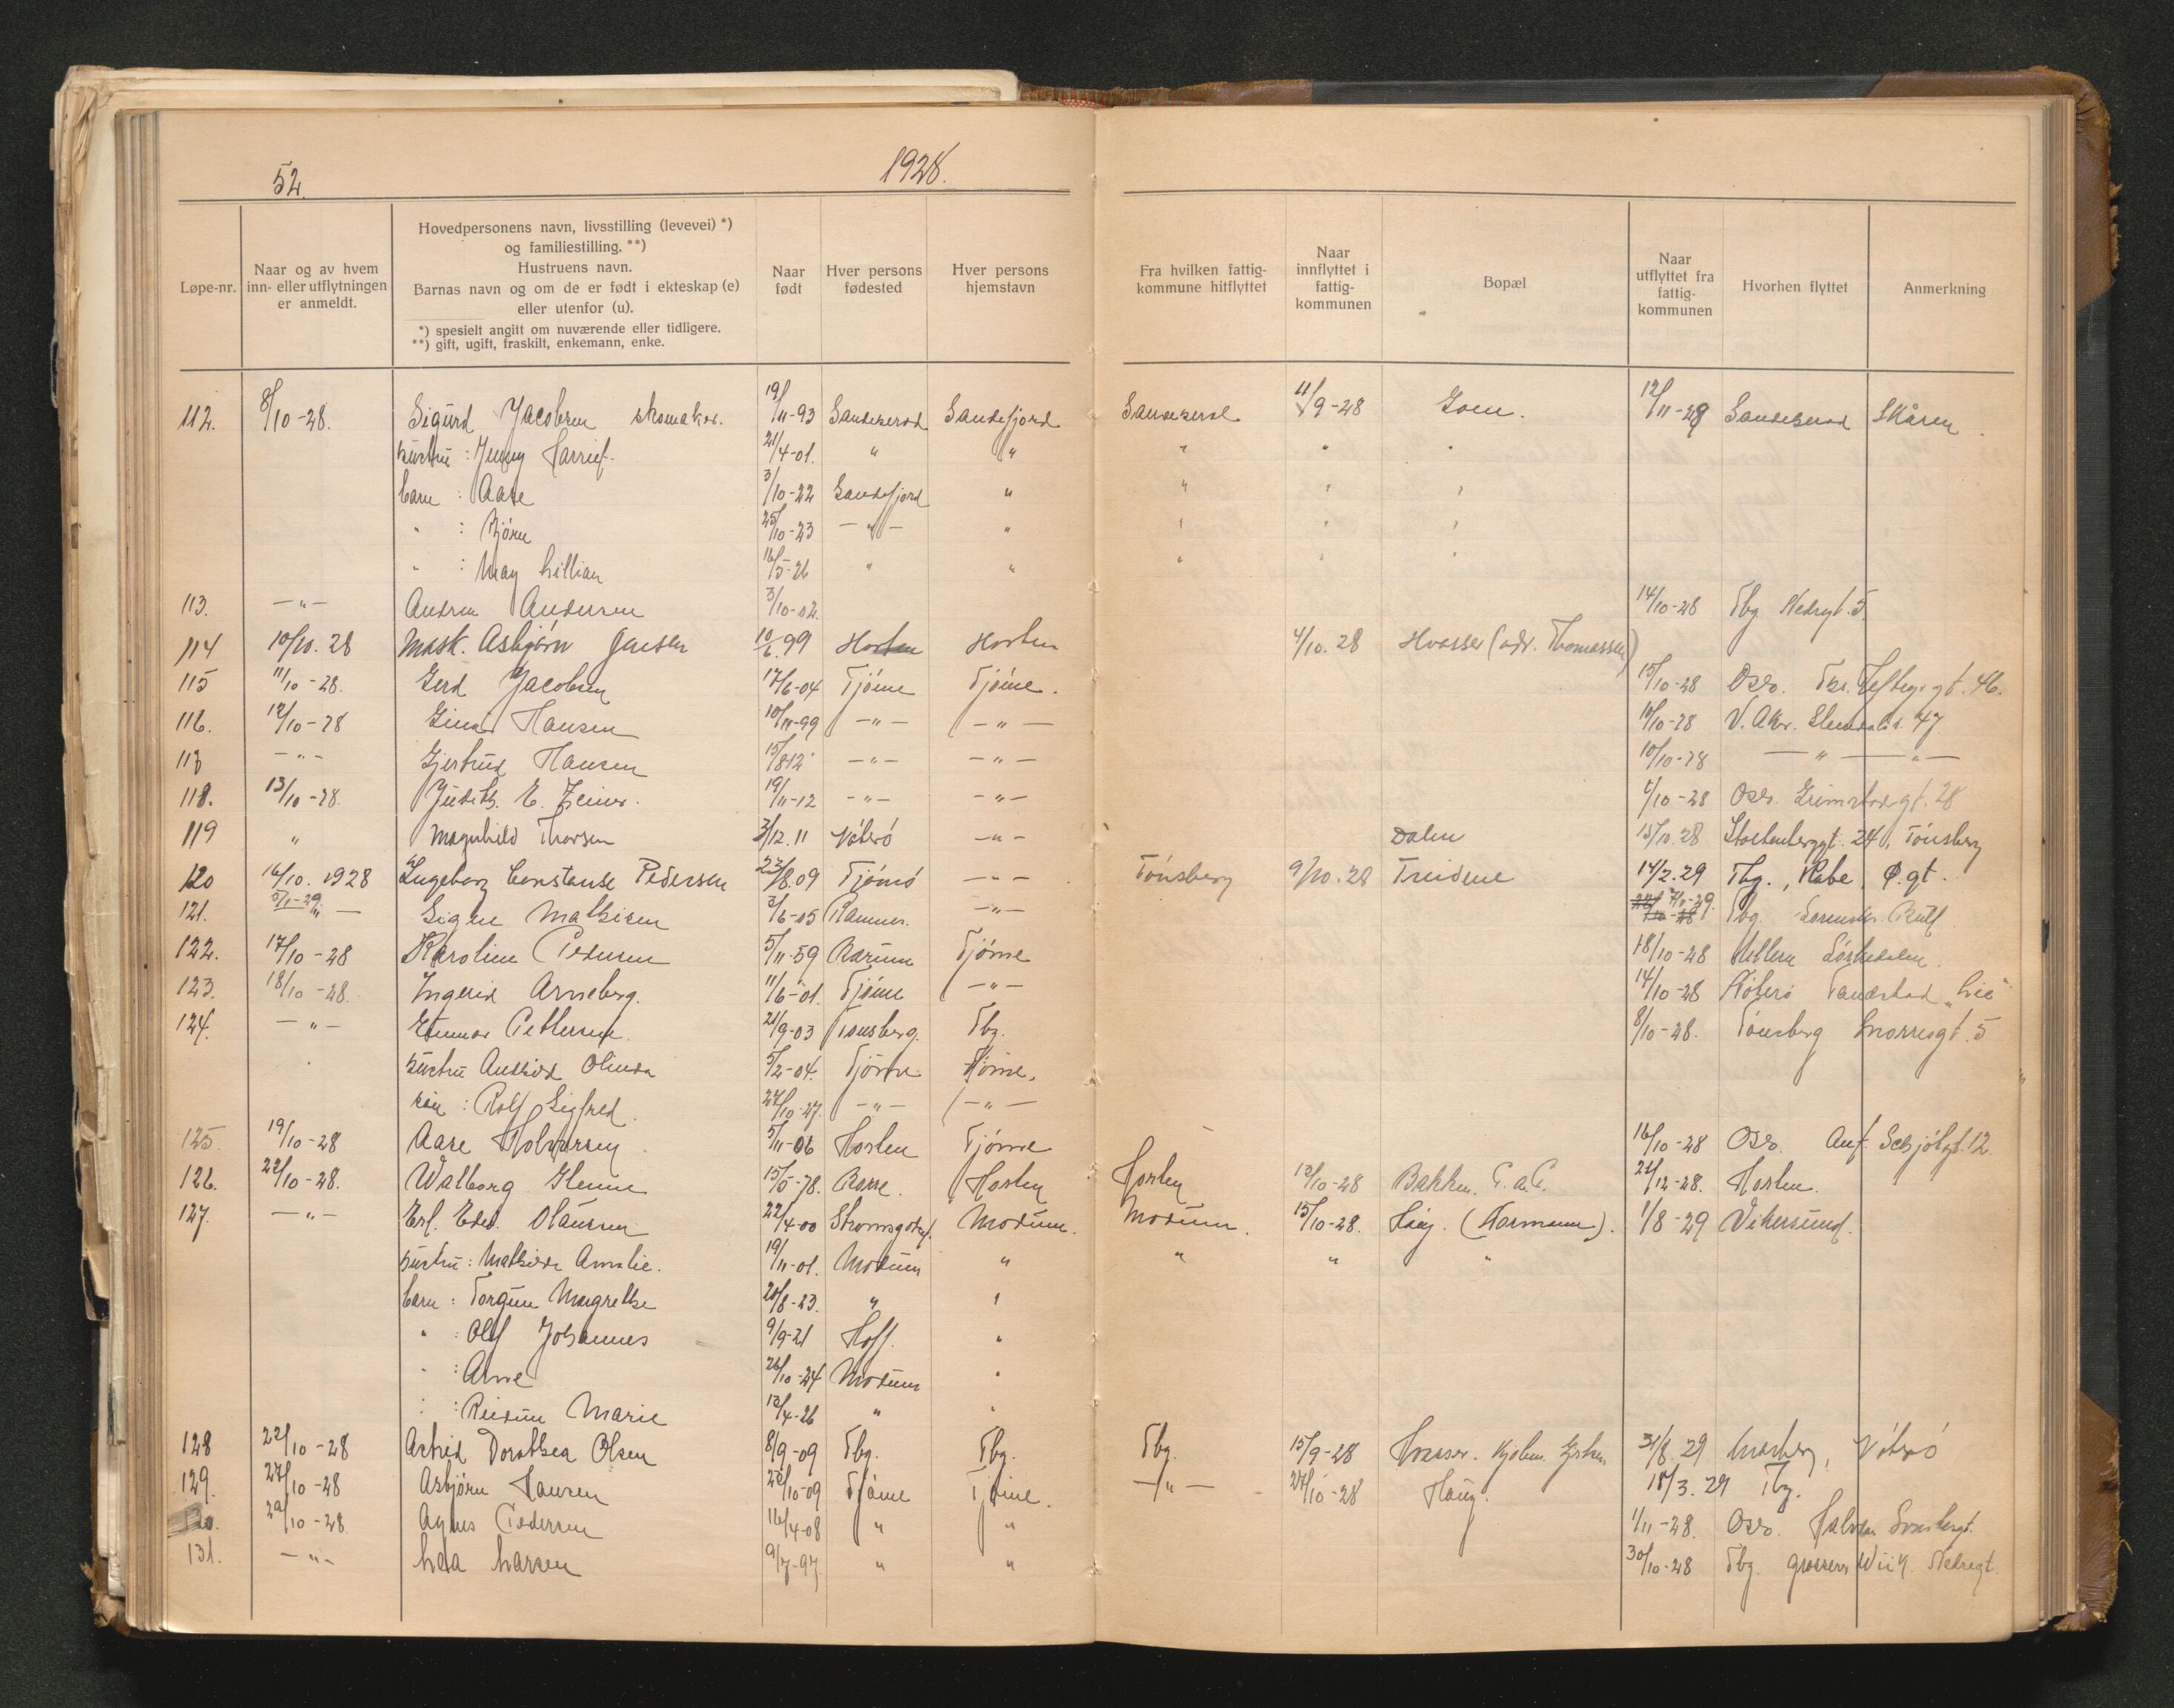 52.
1928.
Løpe-nr.
Naar og av hvem
inn- eller utflytningen
er anmeldt.
Hovedpersonens navn, livsstilling (levevei) *)
og familiestilling. **)
Hustruens navn.
Barnas navn og om de er født i ekteskap (e)
eller utenfor (u).
*) spesielt angitt om nuværende eller tidligere.
**) gift, ugift, fraskilt, enkemann, enke.
Naar
født
Hver persons
fødested
Hver persons
hjemstavn
Fra hvilken fattig-
kommune hitflyttet
Naar
innflyttet i
fattig-
kommunen
Bopæl
Naar
utflyttet fra
fattig-
kommunen
Hvorhen flyttet
Anmerkning
112. 8/10-28. Sigurd Jacobsen skomaker. 19/11-93 Sandeherad Sandefjord Sandeherad 11/9-28 12/11-28 Sandeherad Skåren
hustru : Jenny Harriet 21/4-01. " " " " "
barn : Aage 3/10-22 Sandefjord " " " "
" : Bjørn 25/10-23 — " — " " " "
" : May Lillian 16/5-26 " " " " "
113. — " — Andrea Andersen 3/10-02 14/10-28 Tbg Nedregt. 5.
114 10/10.28 Mask. Asbjørn Jensen 10/6.99 Horten Horten 4/10.28 Hvasser (adr. Thomassen)
115 11/10-28. Gerd Jacobsen 17/6-04 Tjøme Tjøme. 15/10-28 Oslo. Ths. Heftyes gt. 46.
116. 12/10-28 Einar Hansen 10/11-99 — " — — " — 10/10-28 V. Aker. 47
117 — " — Gjertrud Hansen 15/8-12 — " — — " — 10/10-28 — " — " —
118. 13/10-28. Judith E. 19/11-12 — " — — " — /10-28 Oslo. Grimstadgt. 28
119 " Magnhild Thorsen 3/12.11 Nøterø — " — Dalen 15/10.28 Stoltenberggt. 24, Tønsberg
120 16/10.1928 Ingeborg Constanse Pedersen 23/8.09 Tjømø — " — Tønsberg 9/10.28 14/2.29 Tbg., Ø.gt.
121. 5/11-29. " — Signe Mathisen 3/6-05 Ramnes. — " — 7/11-29. Tbg.
122. 17/10-28 Karoline Pedersen 5/11-59 Bærum Tjøme 18/10-28 Sørkedalen.
123. 18/10-28. Ingerid Arneberg. 11/6-01. Tjøme — " — 14/10-28 Nøterø
124. — " — Gunnar Pettersen. 21/9-03 Tønsberg. Tbg. 8/10-28. Tønsberg Snorresgt. 5
hustru Olinda 5/2-04. Tjøme Tjøme.
: Rolf Sigfred. 27/10-27. — " — — " —
125. 19/10-28 Aase Halvorsen 5/11-06 Horten Tjøme 16/10-28 Oslo. Ant. Schjøtsgt. 12.
126. 22/10-28. Walborg Glenne 15/5-78. Borre. Horten Horten 13/10-28 Bakken. 21/12-28. Horten.
127. — " — Erl. Edv. Olaussen 22/4-00 Strømsgodset Modum. Modum. 15/10-28. Haug. (Hermann). 1/8-29 Vikersund.
hustru : Mathilde Amalie. 19/11-01. Modum " " " "
barn : Torgun Margrethe 20/8-23. " "
" : Olaf Johannes 9/9-21 Hoff. "
" : Arne 26/10-24 Modum "
" : Reidun Marie 13/4-26 " "
128 22/10-28 Astrid Dorothea Olsen 8/9-09 Tbg. Tbg. Tbg. 15/9-28 Hvasser. 31/8.29 Nøterø
129. 27/10-28 Asbjørn Hansen 28/10-09 Tjøme Tjøme. — " — 27/10-28 Haug. 18/3.29 Tbg.
29/10-28. Agnes Pedersen 16/4-08 " " 1/11-28. Oslo.
131. — " — Laa Larsen 9/7-97 " " 30/10-28 Tbg. grosserer Wiik Nedregt.